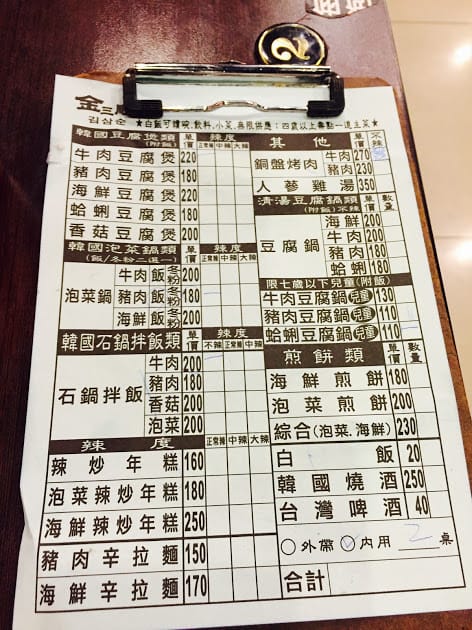 金三
김삼순
★白飯可轉碗,飲料,小菜,無限供應:四歲以上需點一道主菜★
韓國豆腐煲類(附飯) 單價 辣度 正常辣 中辣 大辣
牛肉豆腐煲 220
豬肉豆腐煲 180
海鮮豆腐煲 220
蛤蜊豆腐煲 180
香菇豆腐煲 200
韓國泡菜鍋類(飯/冬粉二選一) 單價 辣度 正常辣 中辣 大辣
泡菜鍋
牛肉 飯 冬粉 200
豬肉 飯 冬粉 180
海鮮 飯 冬粉 200
韓國石鍋拌飯類 單價 辣度 不辣 正常辣 中辣 大辣
石鍋拌飯
牛肉 200
豬肉 180
香菇 200
泡菜 200
辣度 單價 正常辣 中辣 大辣
辣炒年糕 160
泡菜辣炒年糕 180
海鮮辣炒年糕 250
豬肉辛拉麵 150
海鮮辛拉麵 170
其他 單價 不辣
銅盤烤肉
牛肉 270
豬肉 230
人蔘雞湯 350
清湯豆腐鍋類(附飯)不辣 單價 數量
豆腐鍋
海鮮 200
牛肉 200
豬肉 180
蛤蜊 180
限七歲以下兒童(附飯) 單價
牛肉豆腐鍋 兒童 130
豬肉豆腐鍋 兒童 110
蛤蜊豆腐鍋 兒童 110
煎餅類 單價 數量
海鮮煎餅 180
泡菜煎餅 200
綜合(泡菜.海鮮) 230
白飯 20
韓國燒酒 250
台灣啤酒 40
○外帶 ○內用 2 桌
合計
2